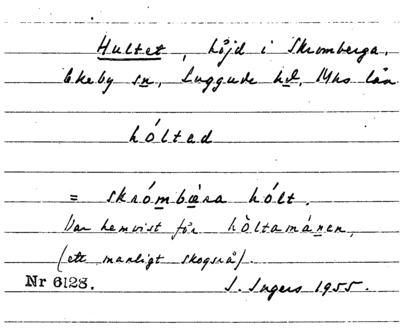 Hultet, höjd i Skromberga,
Ekeby sn, Luggude hd, Mhs län
hóltad
= skrómbæra hólt.
Var hemvist för hòltamánen,
(ett manligt skogsrå).
Nr 6128. S. Ingers 1955.